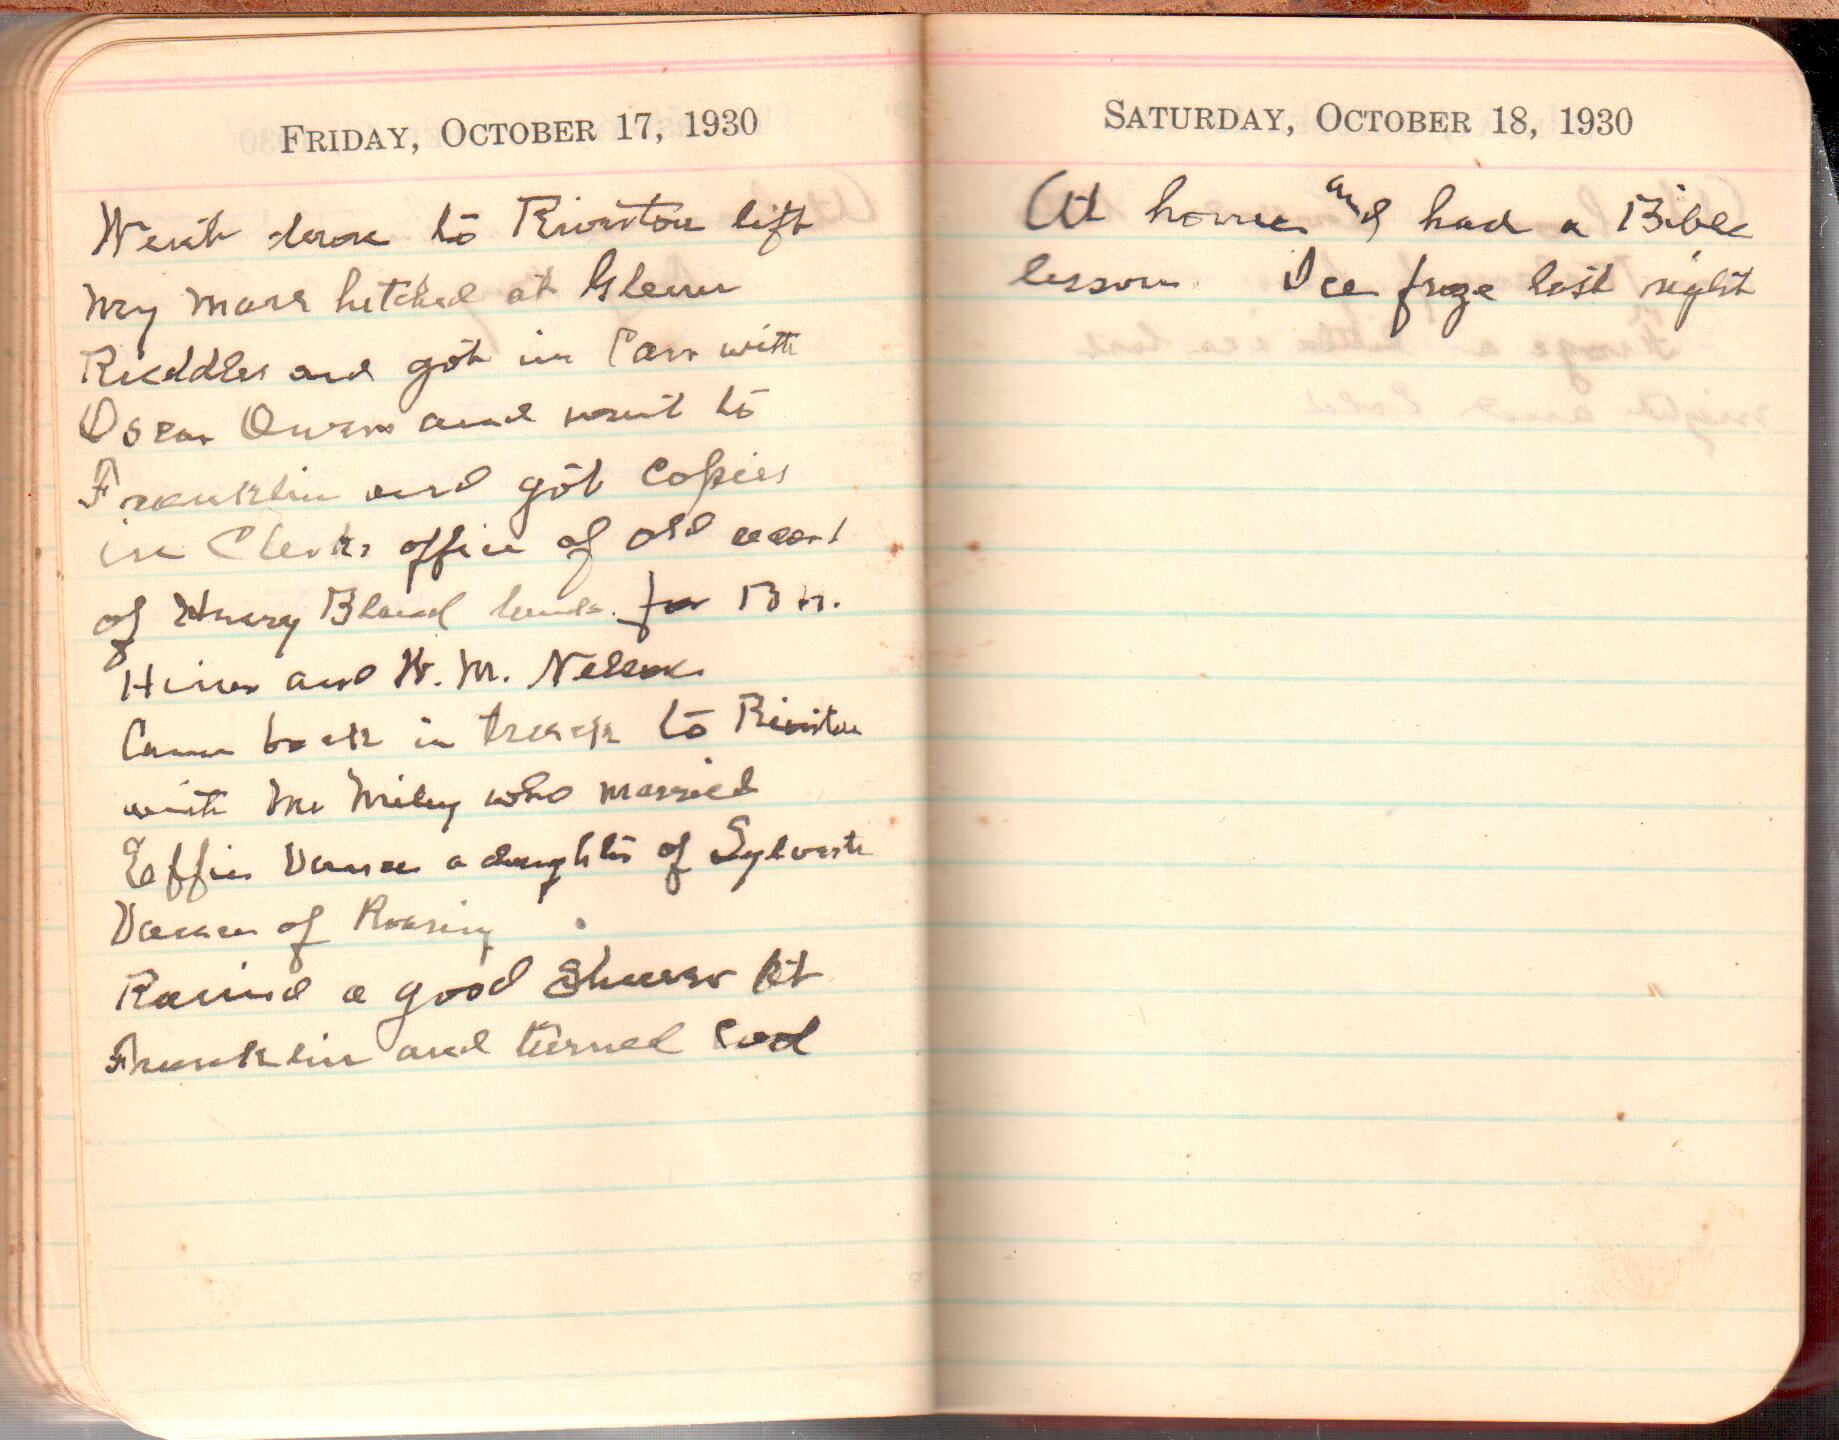 FRIDAY, OCTOBER 17, 1930
Went down to Riverton left
my mare hitched at Glenn
Ruddles and got in Car with
Oscar Owens and went to
Franklin and got Copies
in Clerks office of old
of Henry Bland lands. for B H.
Hiner and W. M. Nelson
Came back in truck to Riverton
with Mr Miley who married
Effie Vance a daughter of Sylvester
Vance of Roaring
Rained a good Shower at
Franklin and turned cool
SATURDAY, OCTOBER 18, 1930
At home and had a Bible
lesson. Ice froze last night